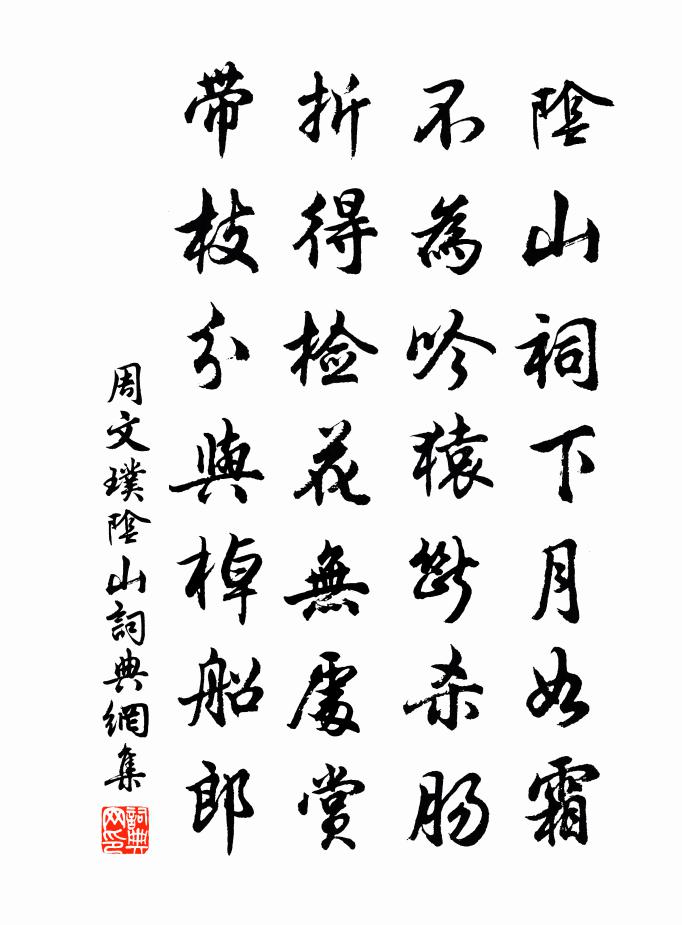 陰山祠下月如霜
不為吟猿斷杀肠
折得検花無處赏
带枝分與棹船郎
周文璞陰山詞典網集
詞典网印